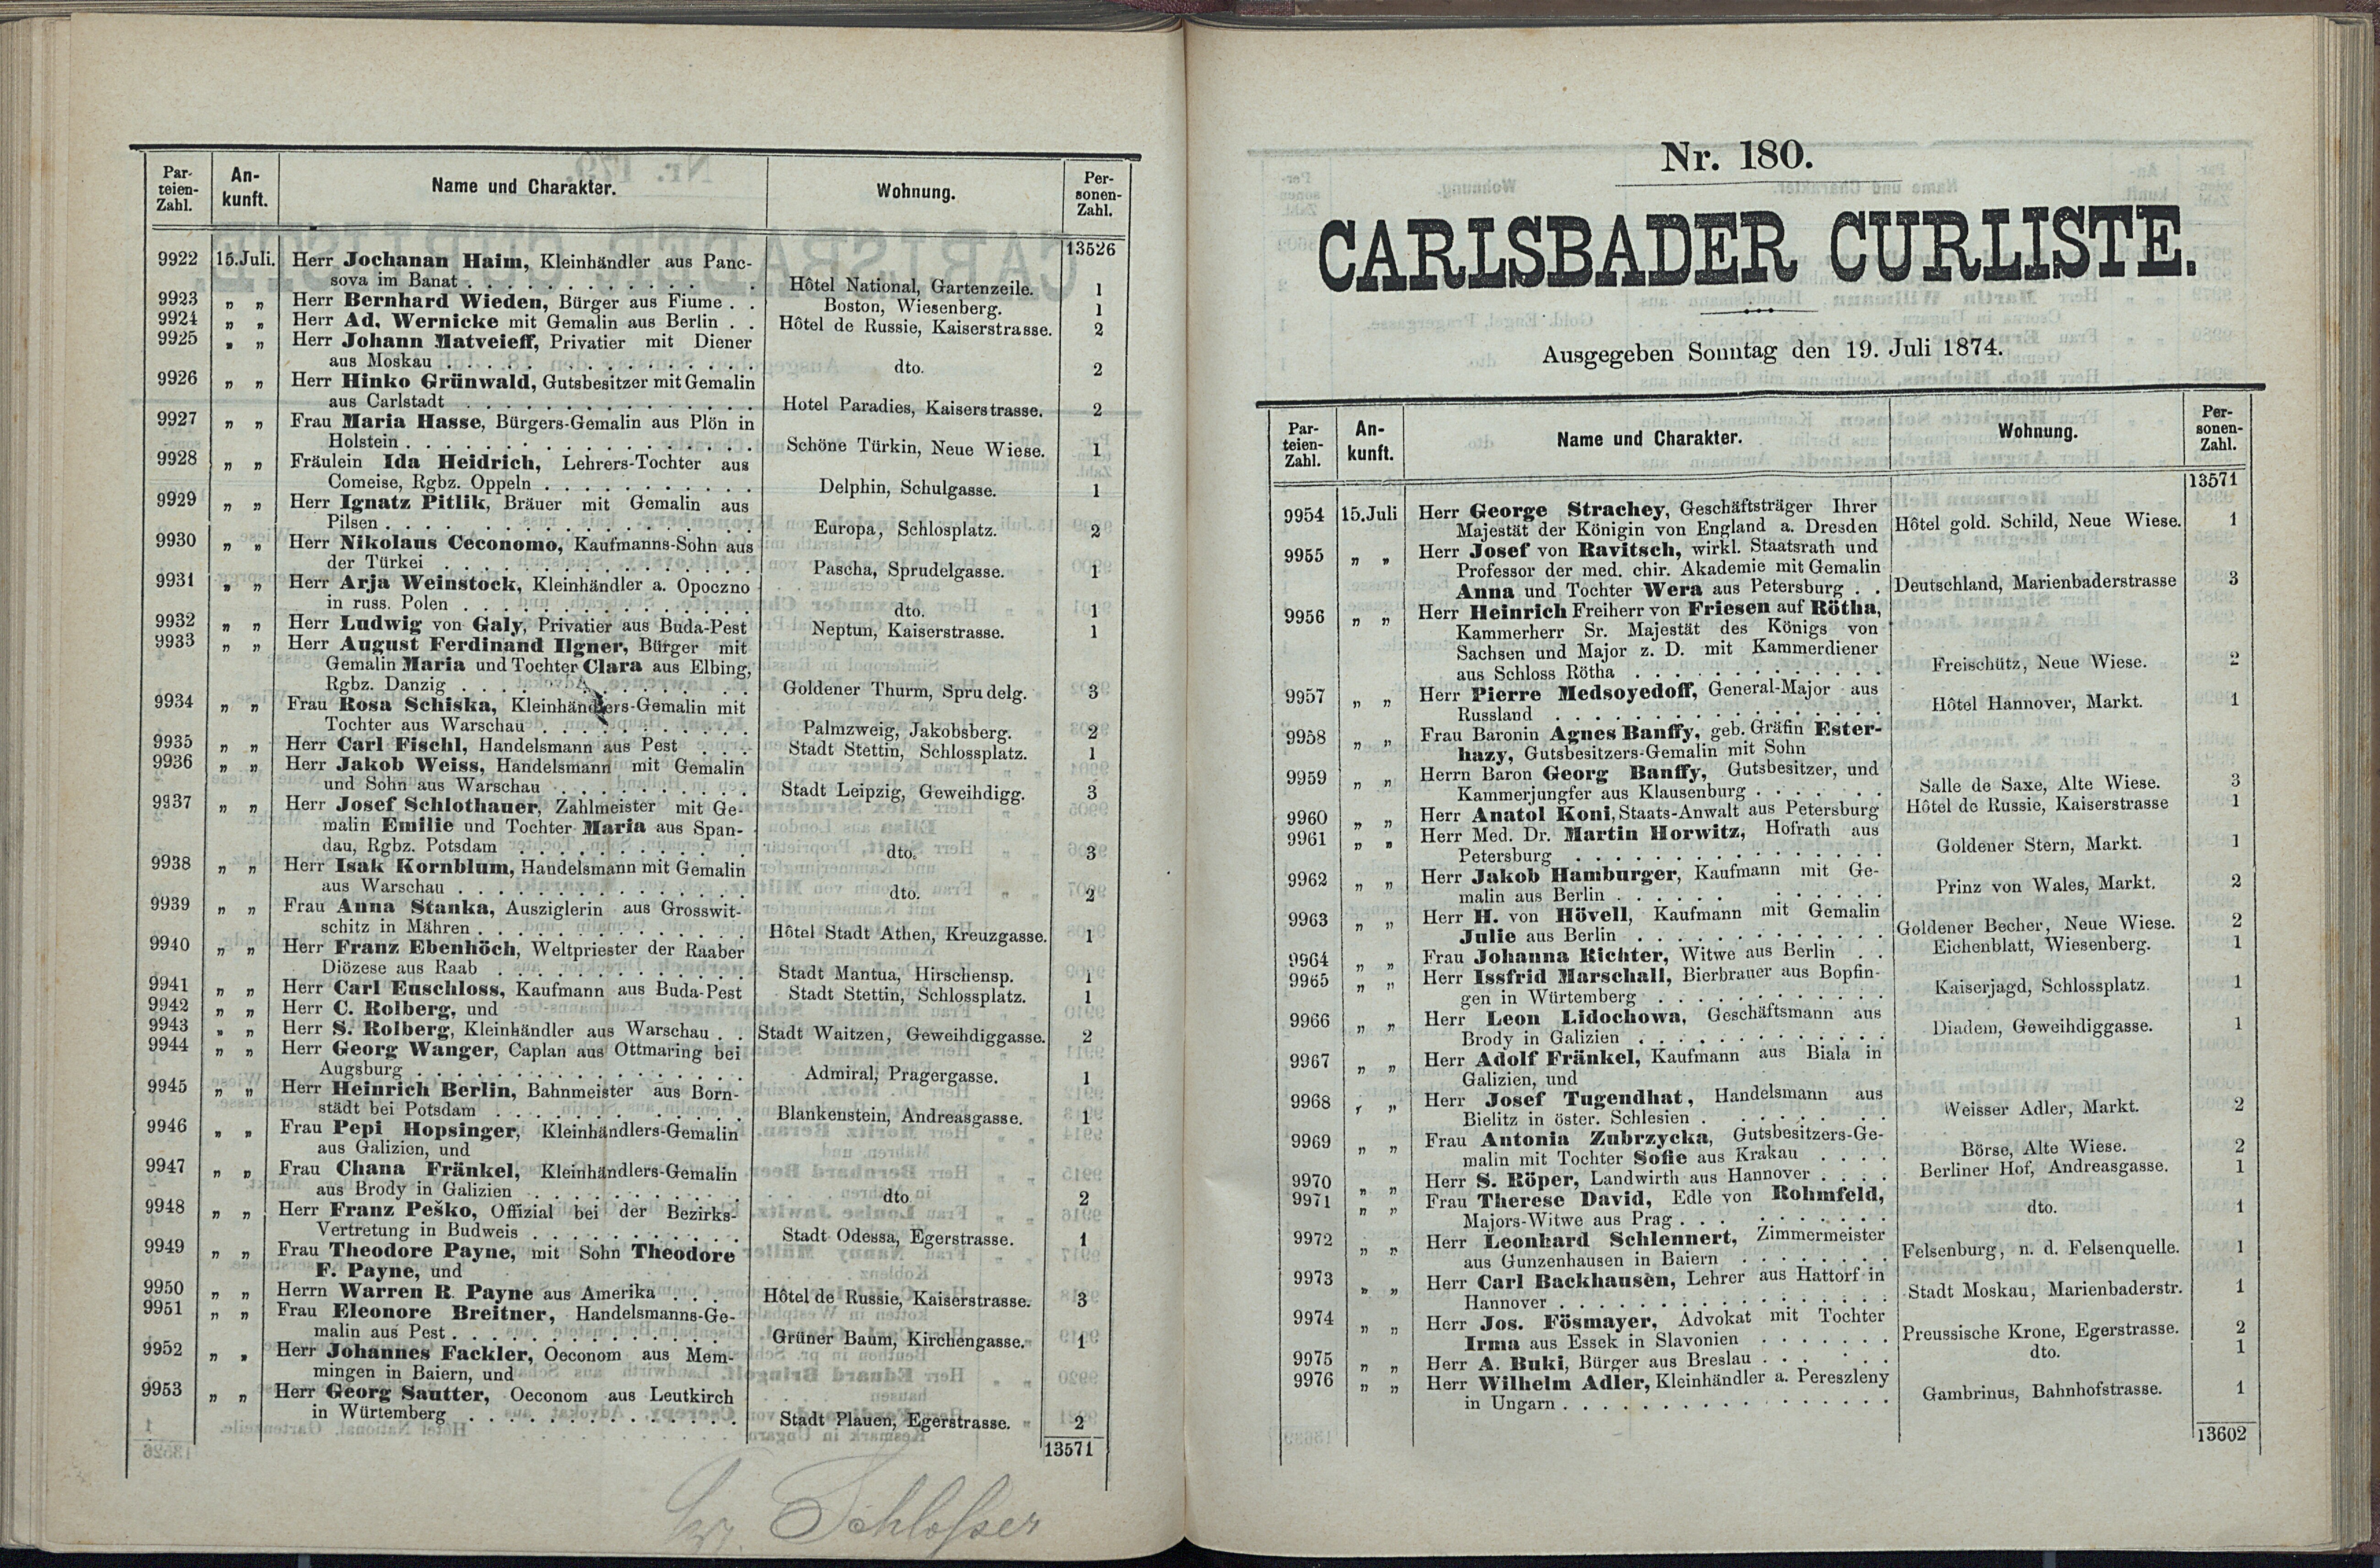 Par-
teien-
Zahl.
An-
kunft.
Name und Charakter.
Wohnung.
Per-
sonen-
Zahl.
13526
9922 15.Juli. Herr Jochanan Haim, Kleinhändler aus Panc-
sova im Banat . . . Hôtel National, Gartenzeile. 1
9923 „ „ Herr Bernhard Wieden, Bürger aus Fiume . . Boston, Wiesenberg. 1
9924 „ „ Herr Ad. Wernicke mit Gemalin aus Berlin . . Hôtel de Russie, Kaiserstrasse. 2
9925 „ „ Herr Johann Matveieff, Privatier mit Diener
aus Moskau . . . dto. 2
9926 „ „ Herr Hinko Grünwald, Gutsbesitzer mit Gemalin
aus Carlstadt . . . Hotel Paradies, Kaiserstrasse. 2
9927 „ „ Frau Maria Hasse, Bürgers-Gemalin aus Plön in
Holstein . . . Schöne Türkin, Neue Wiese. 1
9928 „ „ Fräulein Ida Heidrich, Lehrers-Tochter aus
Comeise, Rgbz. Oppeln . . . Delphin, Schulgasse. 1
9929 „ „ Herr Ignatz Pitlik, Bräuer mit Gemalin aus
Pilsen . . . Europa, Schlosplatz. 2
9930 „ „ Herr Nikolaus Ceconomo, Kaufmanns-Sohn aus
der Türkei . . . Pascha, Sprudelgasse. 1
9931 „ „ Herr Arja Weinstock, Kleinhändler a. Opoczno
in russ. Polen . . . dto. 1
9932 „ „ Herr Ludwig von Galy, Privatier aus Buda-Pest Neptun, Kaiserstrasse. 1
9933 „ „ Herr August Ferdinand Ilgner, Bürger mit
Gemalin Maria und Tochter Clara aus Elbing,
Rgbz. Danzig . . . Goldener Thurm, Sprudelg. 3
9934 „ „ Frau Rosa Schiska, Kleinhändlers-Gemalin mit
Tochter aus Warschau . . . Palmzweig, Jakobsberg. 2
9935 „ „ Herr Carl Fischl, Handelsmann aus Pest . . . Stadt Stettin, Schlossplatz. 1
9936 „ „ Herr Jakob Weiss, Handelsmann mit Gemalin
und Sohn aus Warschau . . . Stadt Leipzig, Geweihdigg. 3
9937 „ „ Herr Josef Schlothauer, Zahlmeister mit Ge-
malin Emilie und Tochter Maria aus Span-
dau, Rgbz. Potsdam . . . dto. 3
9938 „ „ Herr Isak Kornblum, Handelsmann mit Gemalin
aus Warschau . . . dto. 2
9939 „ „ Frau Anna Stanka, Auszüglerin aus Grosswit-
schitz in Mähren . . . Hôtel Stadt Athen, Kreuzgasse. 1
9940 „ „ Herr Franz Ebenhöch, Weltpriester der Raaber
Diözese aus Raab . . . Stadt Mantua, Hirschensp. 1
9941 „ „ Herr Carl Euschloss, Kaufmann aus Buda-Pest Stadt Stettin, Schlossplatz. 1
9942 „ „ Herr C. Rolberg, und
9943 „ „ Herr S. Rolberg, Kleinhändler aus Warschau . . Stadt Waitzen, Geweihdiggasse. 2
9944 „ „ Herr Georg Wanger, Caplan aus Ottmaring bei
Augsburg . . . Admiral, Pragergasse. 1
9945 „ „ Herr Heinrich Berlin, Bahnmeister aus Born-
städt bei Potsdam . . . Blankenstein, Andreasgasse. 1
9946 „ „ Frau Pepi Hopsinger, Kleinhändlers-Gemalin
aus Galizien, und
9947 „ „ Frau Chana Fränkel, Kleinhändlers-Gemalin
aus Brody in Galizien . . . dto. 2
9948 „ „ Herr Franz Peško, Offizial bei der Bezirks-
Vertretung in Budweis . . . Stadt Odessa, Egerstrasse. 1
9949 „ „ Frau Theodore Payne, mit Sohn Theodore
F. Payne, und
9950 „ „ Herrn Warren R. Payne aus Amerika . . . Hôtel de Russie, Kaiserstrasse. 3
9951 „ „ Frau Eleonore Breitner, Handelsmanns-Ge-
malin aus Pest . . . Grüner Baum, Kirchengasse. 1
9952 „ „ Herr Johannes Fackler, Oeconom aus Mem-
mingen in Baiern, und
9953 „ „ Herr Georg Sautter, Oeconom aus Leutkirch
in Würtemberg . . . Stadt Plauen, Egerstrasse. 2
13571
Schlosser
Nr. 180.
CARLSBADER CURLISTE.
Ausgegeben Sonntag den 19. Juli 1874.
Par-
teien-
Zahl.
An-
kunft.
Name und Charakter.
Wohnung.
Per-
sonen-
Zahl.
13571
9954 15.Juli Herr George Strachey, Geschäftsträger Ihrer
Majestät der Königin von England a. Dresden Hôtel gold. Schild, Neue Wiese. 1
9955 „ „ Herr Josef von Ravitsch, wirkl. Staatsrath und
Professor der med. chir. Akademie mit Gemalin
Anna und Tochter Wera aus Petersburg . . Deutschland, Marienbaderstrasse 3
9956 „ „ Herr Heinrich Freiherr von Friesen auf Rötha,
Kammerherr Sr. Majestät des Königs von
Sachsen und Major z. D. mit Kammerdiener
aus Schloss Rötha . . . Freischütz, Neue Wiese. 2
9957 „ „ Herr Pierre Medsoyedoff, General-Major aus
Russland . . . Hôtel Hannover, Markt. 1
9958 „ „ Frau Baronin Agnes Banffy, geb. Gräfin Ester-
hazy, Gutsbesitzers-Gemalin mit Sohn
9959 „ „ Herrn Baron Georg Banffy, Gutsbesitzer, und
Kammerjungfer aus Klausenburg . . . Salle de Saxe, Alte Wiese. 3
9960 „ „ Herr Anatol Koni, Staats-Anwalt aus Petersburg Hôtel de Russie, Kaiserstrasse 1
9961 „ „ Herr Med. Dr. Martin Horwitz, Hofrath aus
Petersburg . . . Goldener Stern, Markt. 1
9962 „ „ Herr Jakob Hamburger, Kaufmann mit Ge-
malin aus Berlin . . . Prinz von Wales, Markt. 2
9963 „ „ Herr H. von Hövell, Kaufmann mit Gemalin
Julie aus Berlin . . . Goldener Becher, Neue Wiese. 2
9964 „ „ Frau Johanna Richter, Witwe aus Berlin . . Eichenblatt, Wiesenberg. 1
9965 „ „ Herr Issfrid Marschall, Bierbrauer aus Bopfin-
gen in Würtemberg . . . Kaiserjagd, Schlossplatz. 1
9966 „ „ Herr Leon Lidochowa, Geschäftsmann aus
Brody in Galizien . . . Diadem, Geweihdiggasse. 1
9967 „ „ Herr Adolf Fränkel, Kaufmann aus Biala in
Galizien, und
9968 „ „ Herr Josef Tugendhat, Handelsmann aus
Bielitz in öster. Schlesien . . . Weisser Adler, Markt. 2
9969 „ „ Frau Antonia Zubrzycka, Gutsbesitzers-Ge-
malin mit Tochter Sofie aus Krakau . . . Börse, Alte Wiese. 2
9970 „ „ Herr S. Röper, Landwirth aus Hannover . . . Berliner Hof, Andreasgasse. 1
9971 „ „ Frau Therese David, Edle von Rohmfeld,
Majors-Witwe aus Prag . . . dto. 1
9972 „ „ Herr Leonhard Schlennert, Zimmermeister
aus Gunzenhausen in Baiern . . . Felsenburg, n. d. Felsenquelle. 1
9973 „ „ Herr Carl Backhausen, Lehrer aus Hattorf in
Hannover . . . Stadt Moskau, Marienbaderstr. 1
9974 „ „ Herr Jos. Fösmayer, Advokat mit Tochter
Irma aus Essek in Slavonien . . . Preussische Krone, Egerstrasse. 2
9975 „ „ Herr A. Buki, Bürger aus Breslau . . . dto. 1
9976 „ „ Herr Wilhelm Adler, Kleinhändler a. Pereszleny
in Ungarn . . . Gambrinus, Bahnhofstrasse. 1
13602